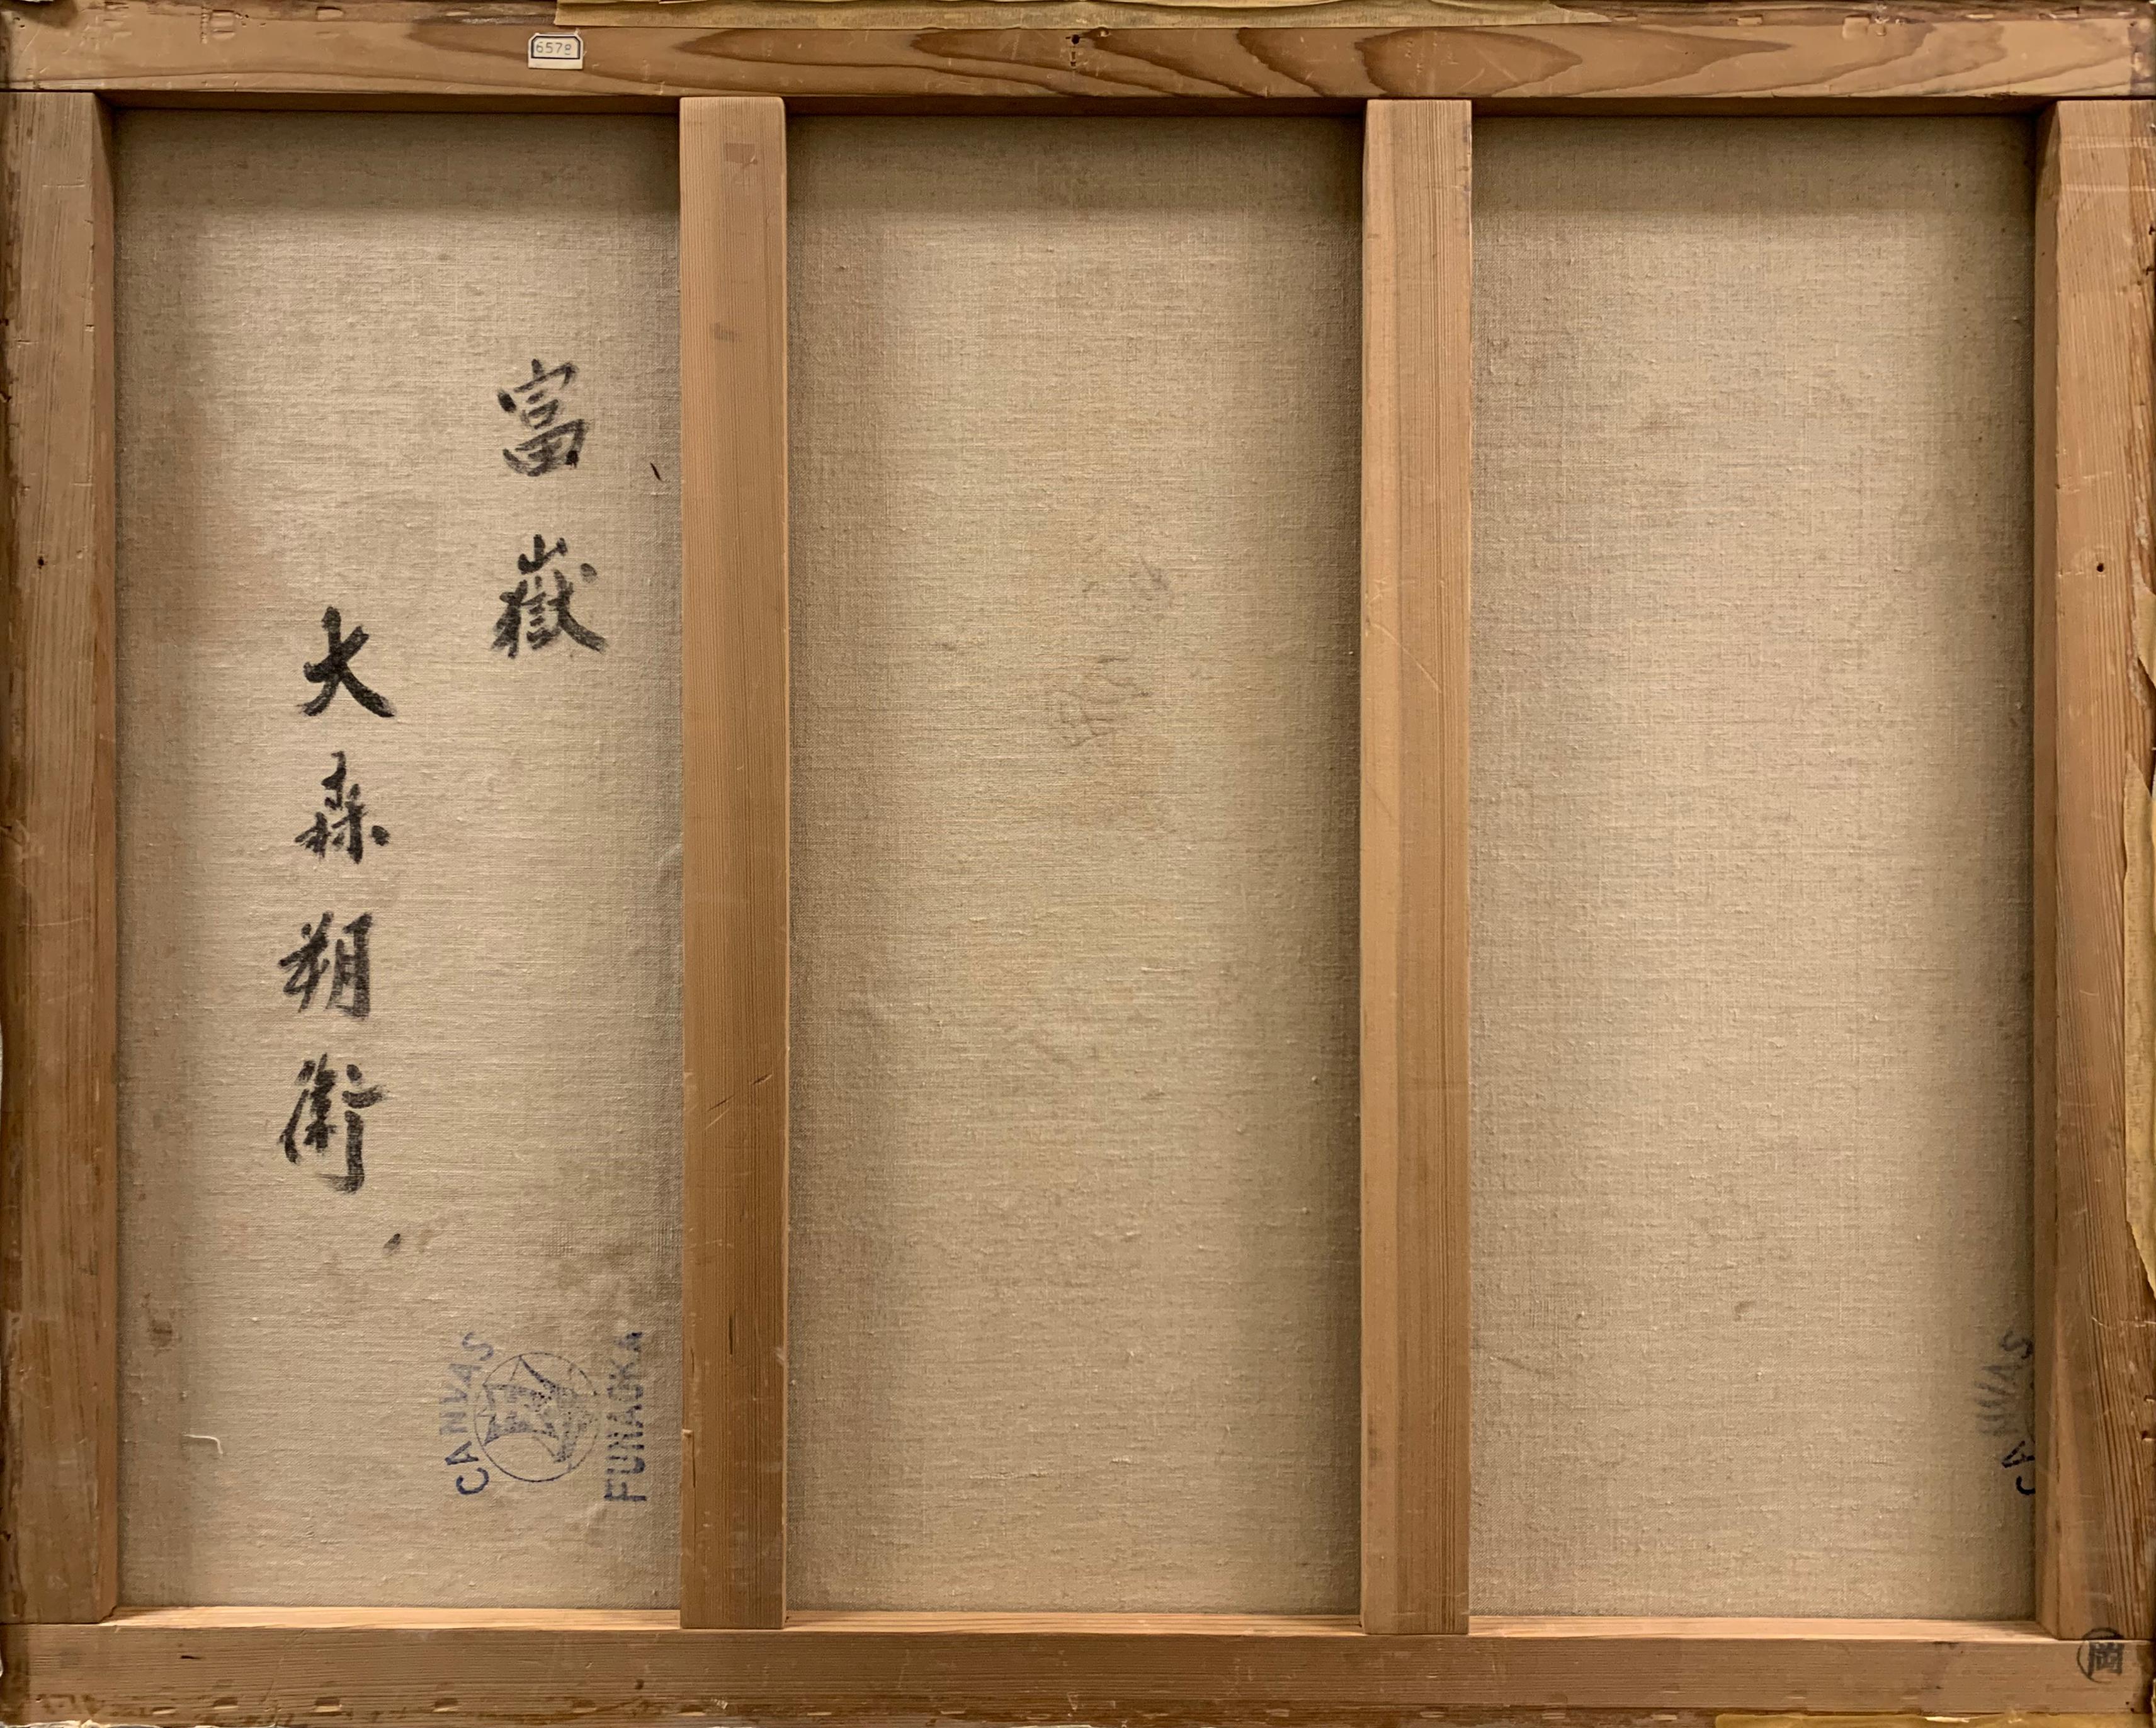 6578
富嶽
大森朔衞
CANVAS
FUNAOKA
CANVAS
岡